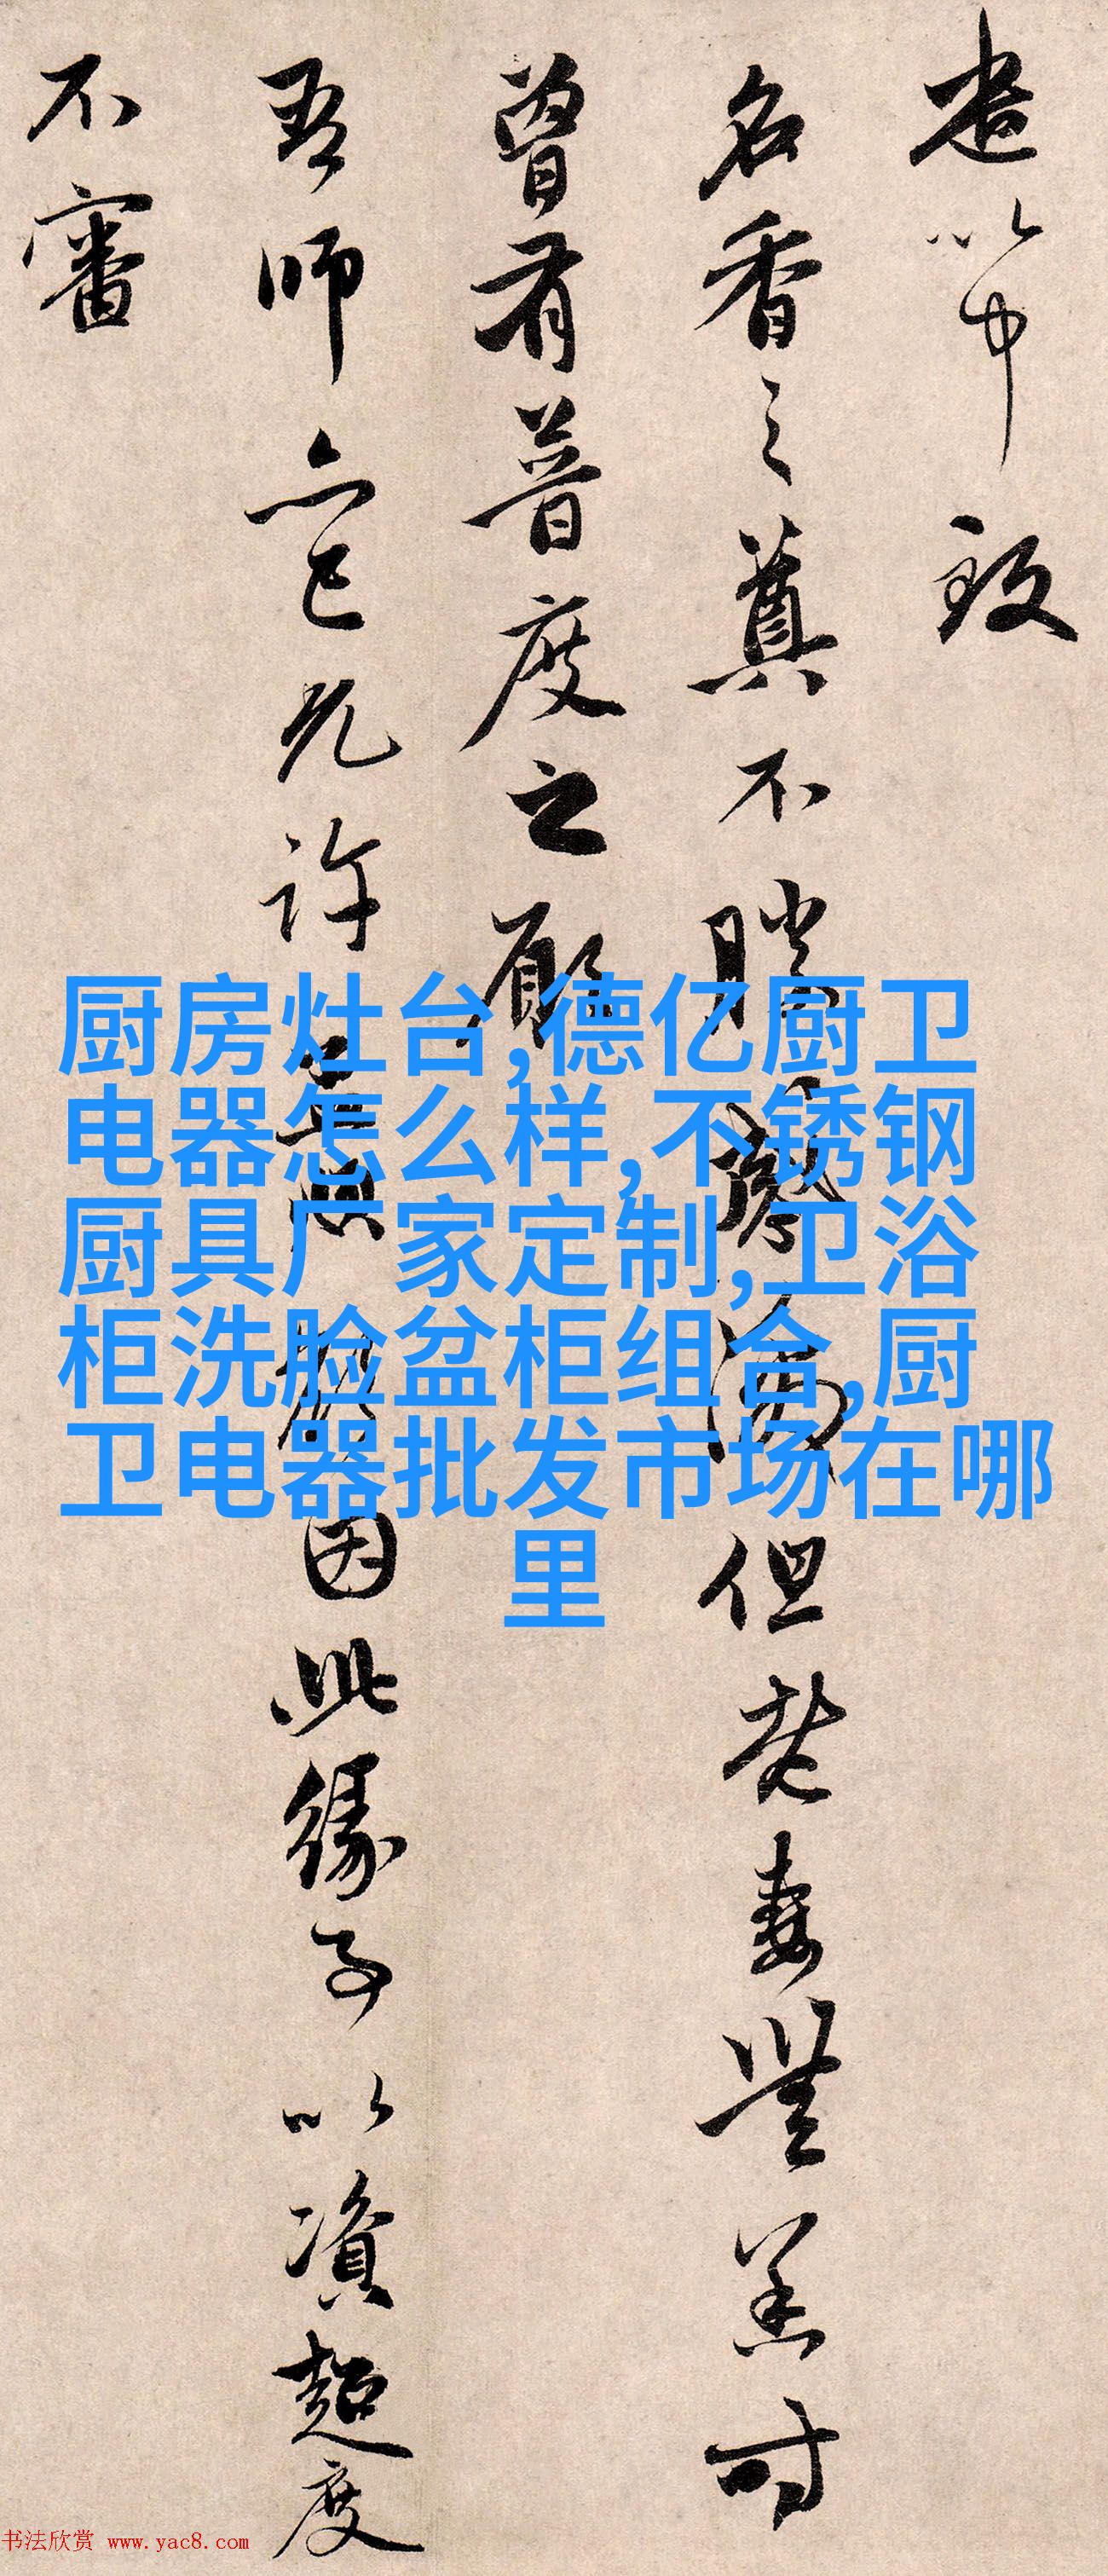 盡以中致
名香之奠不勝感激但老妻無恙時
曾有普度之願
吾師亦已允許
因此緣子以資超度
不審
厨房灶台,德亿厨卫
电器怎么样,不锈钢
厨具厂家定制,卫浴
柜洗脸盆柜组合,厨
卫电器批发市场在哪
里
书法欣赏 www.yac8.com